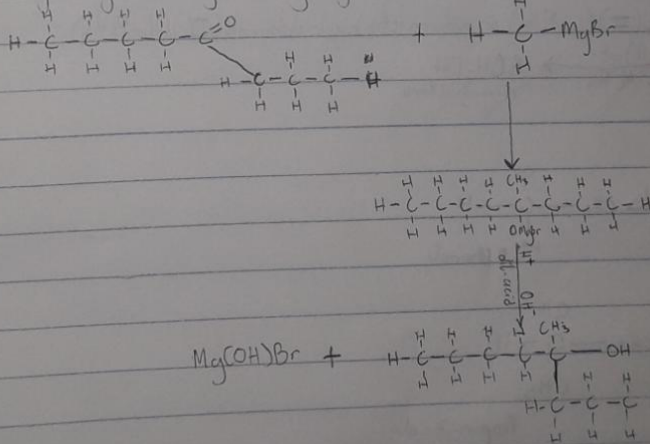 H H H H O
H-C-C-C-C-C
H H H H
H H H
H-C-C-C-H
H H H
+
H
H-C-MgBr
H
H H H H CH₃ H H H
H-C-C-C-C-C-C-C-C-H
H H H H OMgBr H H H
H+
dil. acid
OH-
Mg(OH)Br +
H H H H CH₃
H-C-C-C-C-C-OH
H H H H
H H
H-C-C-C
H H H